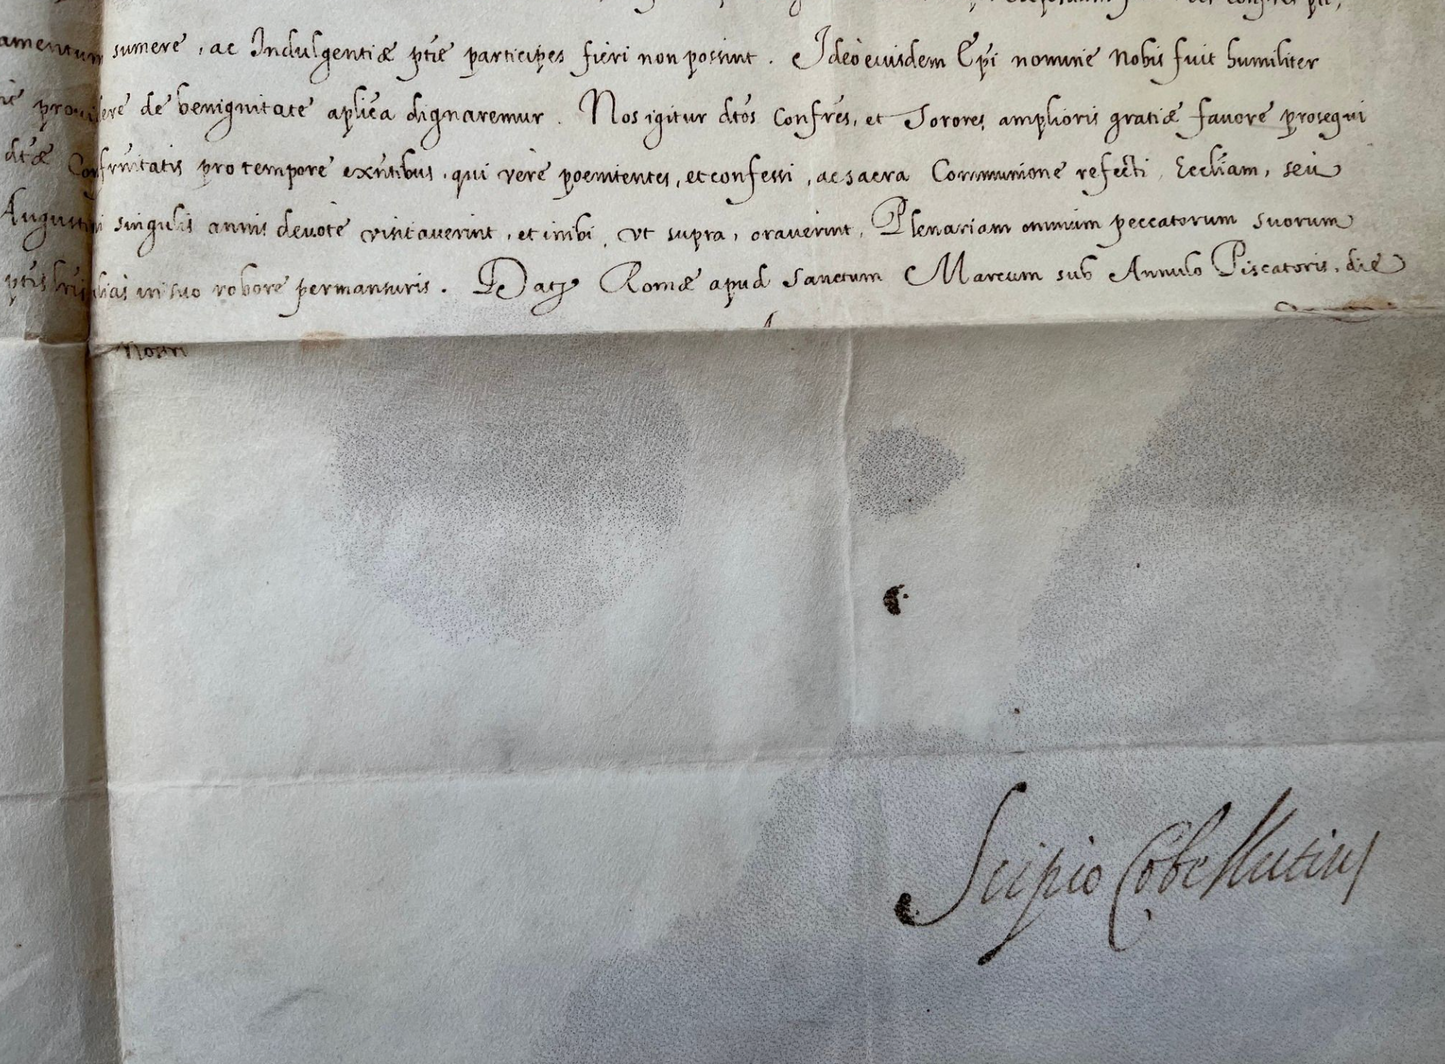 amentum sumere, ac Indulgentiæ ptiē participes fieri non possint. Ideo eiusdem Epi nomine nobis fuit humiliter
providere de benignitate aplica dignaremur. Nos igitur dtos Confres, et Sorores amplioris gratiæ favore prosequi
dtæ Confrnitatis pro tempore exntibus, qui vere poenitentes, et confessi, ac sacra Communione refecti Eccliam, seu
Augustini singulis annis devote visitaverint, et inibi, ut supra, oraverint, Plenariam omnium peccatorum suorum
in suo robore permansuris. Dat Romæ apud Sanctum Marcum sub Annulo Piscatoris, die
Nostri
Scipio Cobellutius